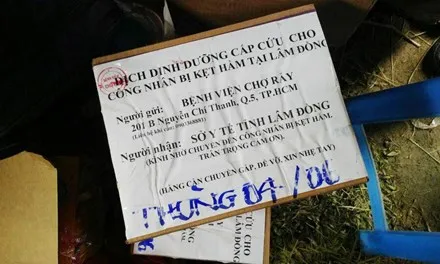 DỊCH DINH DƯỠNG CẤP CỨU CHO
CÔNG NHÂN BỊ KẸT HẦM TẠI LÂM ĐỒNG
Người gửi: BỆNH VIỆN CHỢ RẪY
201 B Nguyễn Chí Thanh, Q.5, TP.HCM
Người nhận: SỞ Y TẾ TỈNH LÂM ĐỒNG
(KÍNH NHỜ CHUYỂN ĐẾN CÔNG NHÂN BỊ KẸT HẦM.
TRÂN TRỌNG CẢM ƠN).
(HÀNG CẦN CHUYỂN GẤP, DỄ VỠ, XIN NHẸ TAY)
THÙNG 04/06
CẤP CỨU CHO
LÂM ĐỒNG